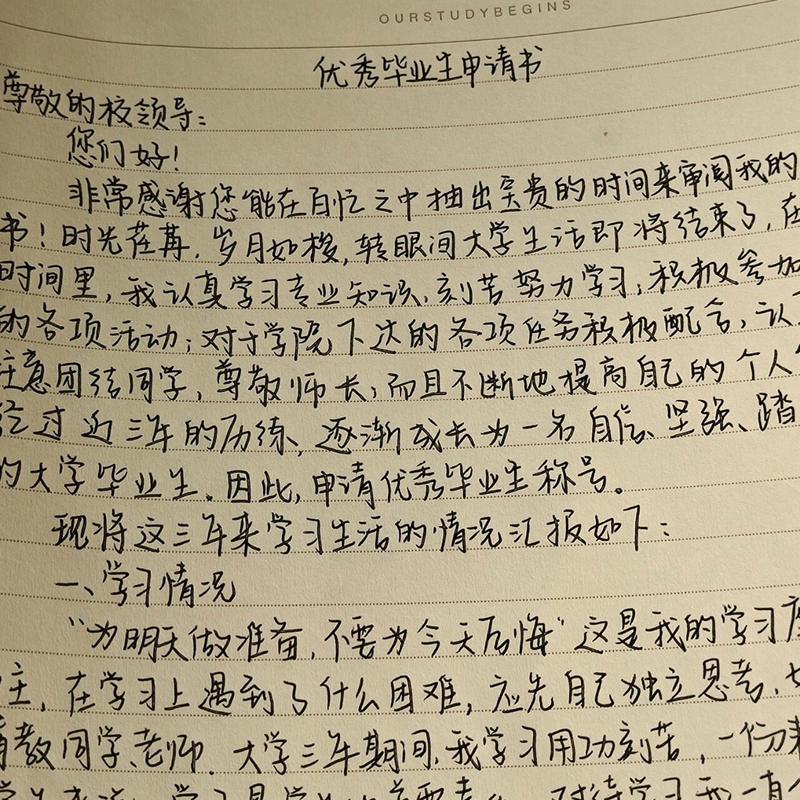 OURSTUDYBEGINS
优秀毕业生申请书
尊敬的校领导：
您们好！
非常感谢您能在百忙之中抽出宝贵的时间来审阅我的
书！时光荏苒，岁月如梭，转眼间大学生活即将结束了，在
时间里，我认真学习专业知识，刻苦努力学习，积极参加
的各项活动；对于学院下达的各项任务积极配合，认
注意团结同学，尊敬师长，而且不断地提高自己的个人
经过近三年的历练，逐渐成长为一名自信、坚强、踏
的大学毕业生。因此，申请优秀毕业生称号。
现将这三年来学习生活的情况汇报如下：
一、学习情况
“为明天做准备，不要为今天后悔”这是我的学习座
在学习上遇到了什么困难，应先自己独立思考，
请教同学、老师。大学三年期间，我学习用功刻苦，一份
对待学习我一直